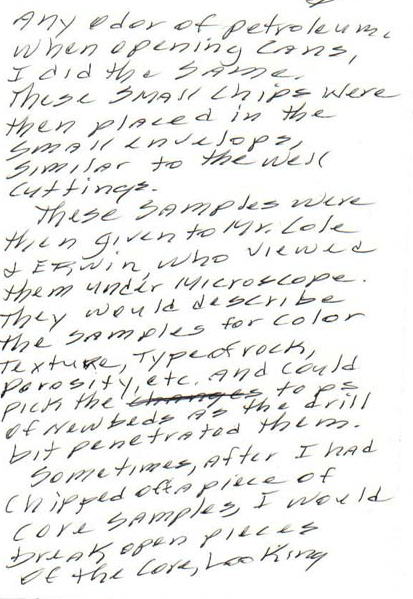 Any odor of petroleum,
when opening cans,
I did the same.
These small chips were
then placed in the
small envelops,
similar to the well
cuttings.
These samples were
then given to Mr. Cole
& Erwin, who viewed
them under microscope.
They would describe
the samples for color
texture, type of rock,
porosity, etc. and could
pick the changes tops
of new beds as the drill
bit penetrated them.
Sometimes, after I had
chipped off a piece of
core samples, I would
break open pieces
of the core, looking